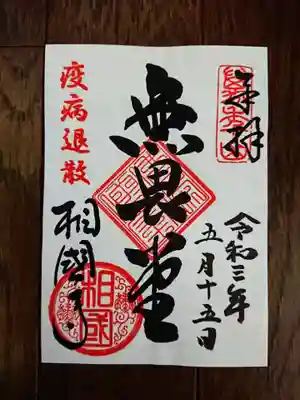 奉拝
令和三年
五月十五日
無畏堂
疫病退散
相國寺
相国